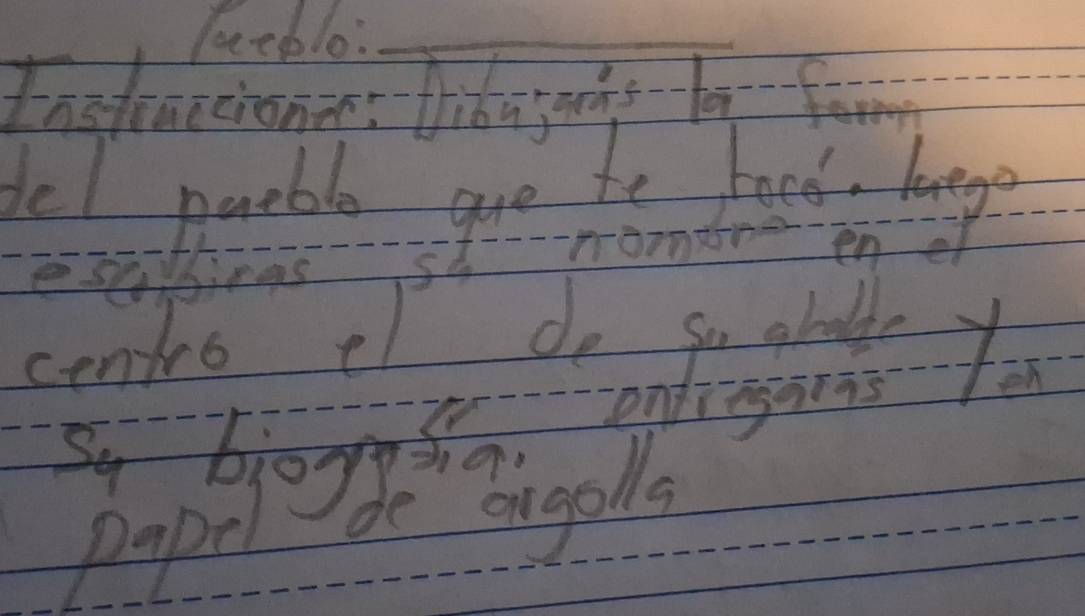 Pueblo:
Instrucciones: Dibujarás la forma
del pueblo que te tocó. luego
escribiras su nombre en el
centro el de su alcalde y
su biografía. entregarás en
papel de argolla